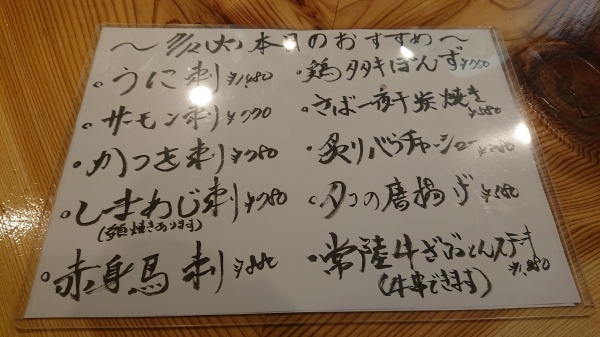 ～炙火本日のおすすめ～
・うに刺 ¥1,480
・サーモン刺 ¥770
・かつお刺 ¥780
・しまあじ刺 ¥780
(頭焼きあります)
・赤身馬刺
・鶏タタキぽんず
・さば一夜干炭焼き
・炙りバラチャーシュー
・タコの唐揚げ
・常陸牛ざぶとんステーキ
(牛串できます)